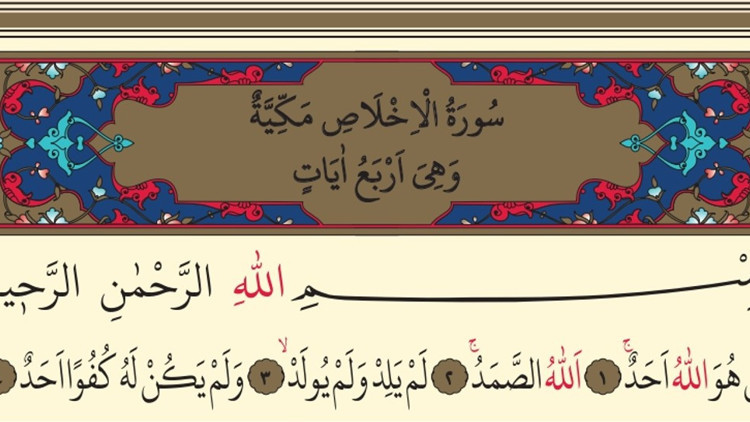 سُورَةُ الْاِخْلَاصِ مَكِّيَّةٌ
وَهِىَ اَرْبَعُ اٰيَاتٍ
ـسْمِ اللّٰهِ الرَّحْمٰنِ الرَّحٖيـ
هُوَ اللّٰهُ اَحَدٌۚ ﴿١﴾ اَللّٰهُ الصَّمَدُۚ ﴿٢﴾ لَمْ يَلِدْ وَلَمْ يُولَدْۙ ﴿٣﴾ وَلَمْ يَكُنْ لَهُ كُفُوًا اَحَدٌ